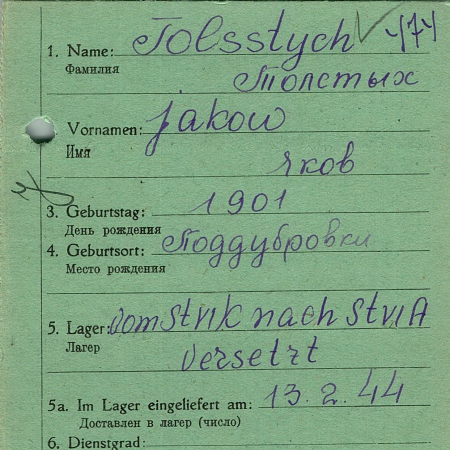 1. Name: Tolsstych 474
Фамилия Толстых
Vornamen: Jakow
Имя Яков
3. Geburtstag: 1901
День рождения
4. Geburtsort: Поддубровки
Место рождения
5. Lager: vom St VI K nach St VI A
Лагерь versetzt
5a. Im Lager eingeliefert am: 13.2.44
Доставлен в лагерь (число)
6. Dienstgrad: